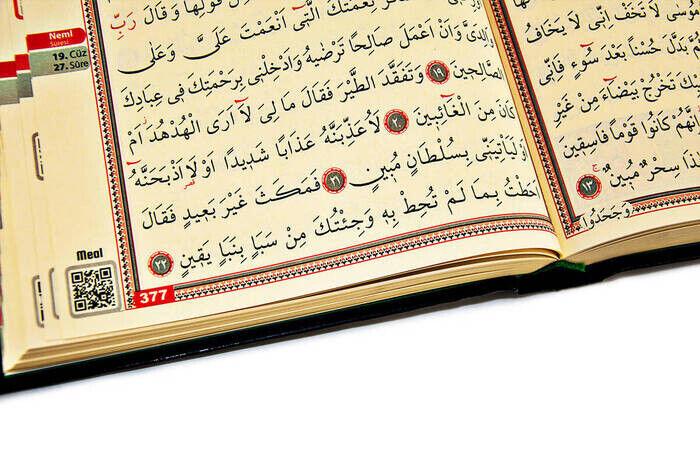 لَا تَخَفْ اِنّٖى لَا يَخَافُ
بَدَّلَ حُسْنًا بَعْدَ سُوءٍ فَاِنّٖى
تَخْرُجْ بَيْضَاءَ مِنْ غَيْرِ
اِنَّهُمْ كَانُوا قَوْمًا فَاسِقٖينَ
سِحْرٌ مُبٖينٌ ١٣ وَجَحَدُوا
Neml
Sûresi
19. Cüz
27. Sûre
قَوْلِهَا وَقَالَ رَبِّ
نِعْمَتَكَ الَّتٖى اَنْعَمْتَ عَلَىَّ وَعَلٰى
وَالِدَىَّ وَاَنْ اَعْمَلَ صَالِحًا تَرْضٰيهُ وَاَدْخِلْنٖى بِرَحْمَتِكَ فٖى عِبَادِكَ
الصَّالِحٖينَ ١٩ وَتَفَقَّدَ الطَّيْرَ فَقَالَ مَا لِىَ لَا اَرَى الْهُدْهُدَ اَمْ
كَانَ مِنَ الْغَائِبٖينَ ٢٠ لَاُعَذِّبَنَّهُ عَذَابًا شَدٖيدًا اَوْ لَا۬اَذْبَحَنَّهُ
اَوْ لَيَاْتِيَنّٖى بِسُلْطَانٍ مُبٖينٍ ٢١ فَمَكَثَ غَيْرَ بَعٖيدٍ فَقَالَ
اَحَطْتُ بِمَا لَمْ تُحِطْ بِهٖ وَجِئْتُكَ مِنْ سَبَاٍ بِنَبَاٍ يَقٖينٍ ٢٢
Meal
377